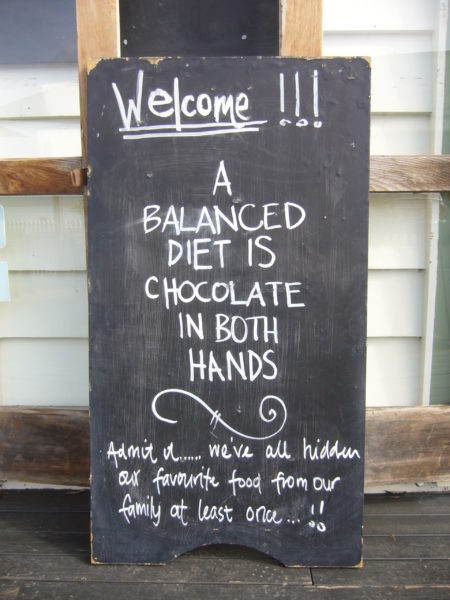 Welcome !!!
A
BALANCED
DIET IS
CHOCOLATE
IN BOTH
HANDS
Admit it...... we've all hidden
our favourite food from our
family at least once... !!